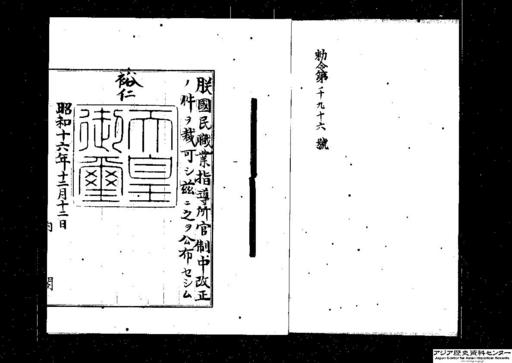 勅令第千九十六號
朕國民職業指導所官制中改正
ノ件ヲ裁可シ茲ニ之ヲ公布セシム
裕仁
天皇御璽
昭和十六年十二月十二日
内閣
アジア歴史資料センター
Japan Center for Asian Historical Records